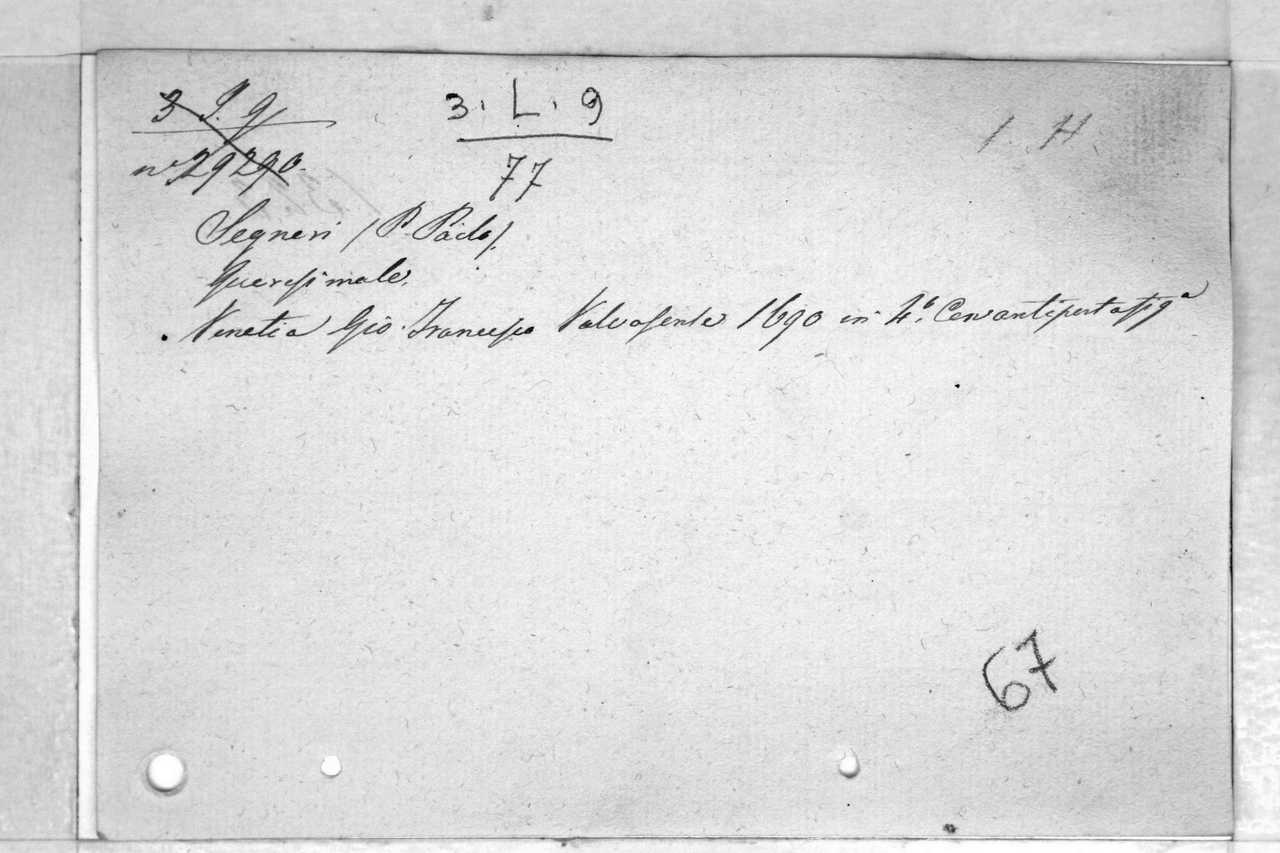 3 P. 9
n° 29290.
3. L. 9
77
1. H.
Segneri (P. Paolo).
Quaresimale.
Venetia Gio. Francesco Valvasense 1690 in 4.° Con antiporta fig.a
67